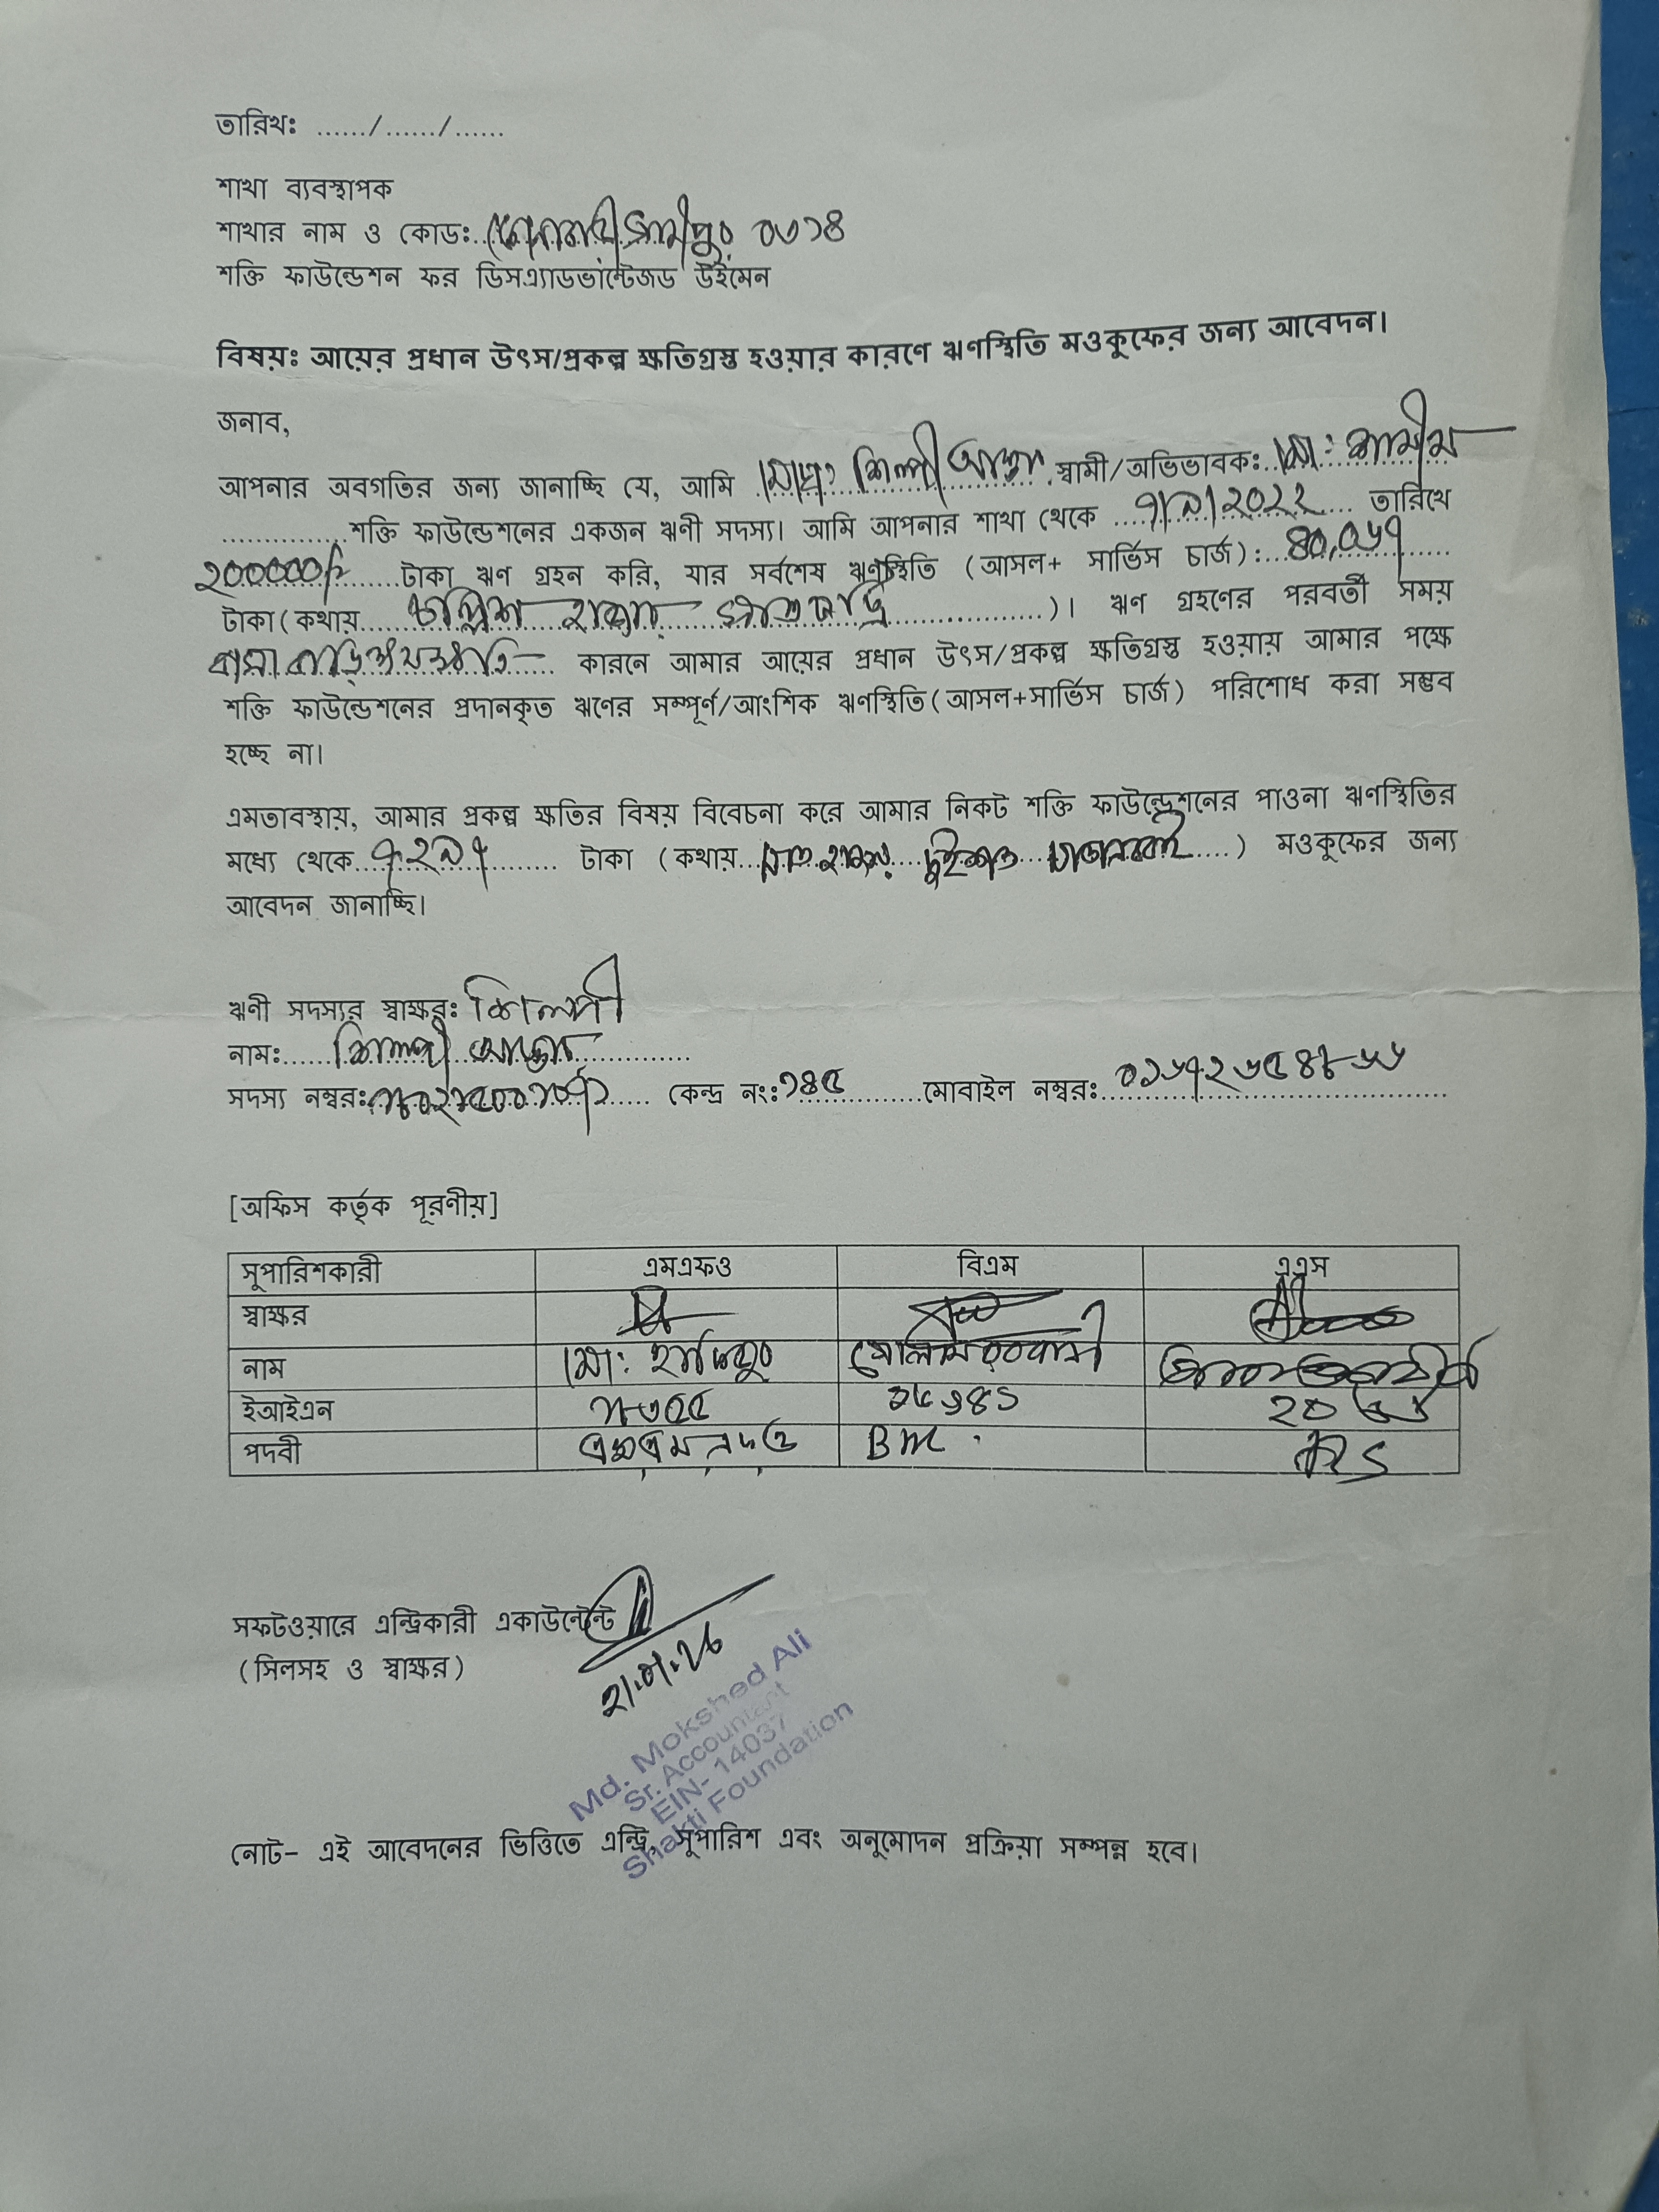 তারিখঃ ....../....../......
শাখা ব্যবস্থাপক
শাখার নাম ও কোডঃ ০৩১৪
শক্তি ফাউন্ডেশন ফর ডিসএ্যাডভান্টেজড উইমেন
বিষয়ঃ আয়ের প্রধান উৎস/প্রকল্প ক্ষতিগ্রস্ত হওয়ার কারণে ঋণস্থিতি মওকুফের জন্য আবেদন।
জনাব,
আপনার অবগতির জন্য জানাচ্ছি যে, আমি মোছাঃ শিল্পী আক্তার স্বামী/অভিভাবকঃ মোঃ শামীম
শক্তি ফাউন্ডেশনের একজন ঋণী সদস্য। আমি আপনার শাখা থেকে ৭/৯/২০২২ তারিখে
২০০০০০/- টাকা ঋণ গ্রহন করি, যার সর্বশেষ ঋণস্থিতি (আসল+ সার্ভিস চার্জ): ৪০,০৬৭
টাকা(কথায় চল্লিশ হাজার সাতষট্টি)। ঋণ গ্রহণের পরবর্তী সময়
কারনে আমার আয়ের প্রধান উৎস/প্রকল্প ক্ষতিগ্রস্ত হওয়ায় আমার পক্ষে
শক্তি ফাউন্ডেশনের প্রদানকৃত ঋণের সম্পূর্ণ/আংশিক ঋণস্থিতি(আসল+সার্ভিস চার্জ) পরিশোধ করা সম্ভব
হচ্ছে না।
এমতাবস্থায়, আমার প্রকল্প ক্ষতির বিষয় বিবেচনা করে আমার নিকট শক্তি ফাউন্ড্রেশনের পাওনা ঋণস্থিতির
মধ্যে থেকে ৭২৯৭ টাকা (কথায় সাত হাজার দুইশত সাতানব্বই) মওকুফের জন্য
আবেদন জানাচ্ছি।
ঋণী সদস্যর স্বাক্ষরঃ শিল্পী
নামঃ শিল্পী আক্তার
সদস্য নম্বরঃ কেন্দ্র নংঃ ১৪৫ মোবাইল নম্বরঃ
[অফিস কর্তৃক পূরণীয়]
সুপারিশকারী এমএফও বিএম এএস
স্বাক্ষর
নাম মোঃ
ইআইএন
পদবী BM
সফটওয়ারে এন্ট্রিকারী একাউন্টেন্ট
(সিলসহ ও স্বাক্ষর)
Md. Mokshed Ali
Sr. Accountant
EIN- 14037
Shakti Foundation
নোট- এই আবেদনের ভিত্তিতে এন্ট্রি, সুপারিশ এবং অনুমোদন প্রক্রিয়া সম্পন্ন হবে।